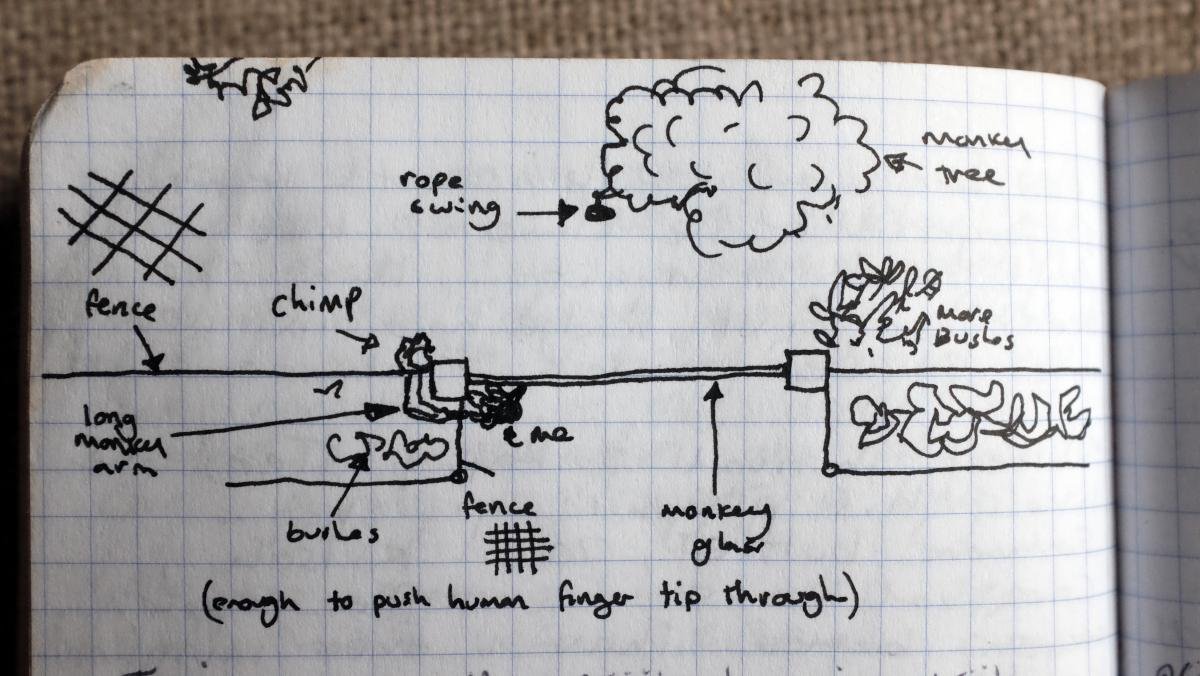 monkey
tree
rope
swing
fence
chimp
more
bushes
long
monkey
arm
me
bushes
fence
monkey
glass
(enough to push human finger tip through)